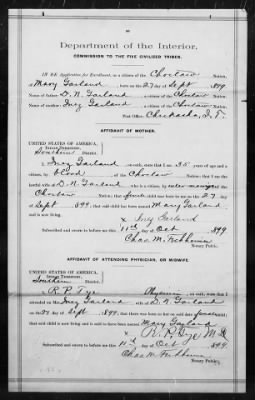 Department of the Interior.
COMMISSION TO THE FIVE CIVILIZED TRIBES.
IN RE Application for Enrollment, as a citizen of the Choctaw Nation,
of Mary Garland, born on the 27 day of Sept, 1899
Name of father D. N. Garland a citizen of the Choctaw Nation.
Name of mother Inez Garland a citizen of the Choctaw Nation.
Post Office, Chickasha, I. T.
AFFIDAVIT OF MOTHER.
UNITED STATES OF AMERICA,
INDIAN TERRITORY,
Southern District.
I, Inez Garland, on oath, state that I am 35 years of age and a
citizen, by blood, of the Choctaw Nation; that I am the
lawful wife of D. N. Garland, who is a citizen, by inter marriage of the
Choctaw Nation; that female child was born to me on 27
of Sept, 1899, that said child has been named Mary Garland,
and is now living.
x Inez Garland
Subscribed and sworn to before me this 11th day of Oct 1899
Chas. M.
Notary Public.
AFFIDAVIT OF ATTENDING PHYSICIAN, OR MIDWIFE.
UNITED STATES OF AMERICA,
INDIAN TERRITORY,
Southern District.
I, R. P. Tye, a Physician, on oath, state that I
attended on Mrs. Inez Garland, wife of D. N. Garland
on the 27 day of Sept, 1899; that there was born to her on said date female child;
that said child is now living and is said to have been named Mary Garland
x R. P. Tye M.D.
Subscribed and sworn to before me this 11th day of Oct 1899
Chas. M.
Notary Public.